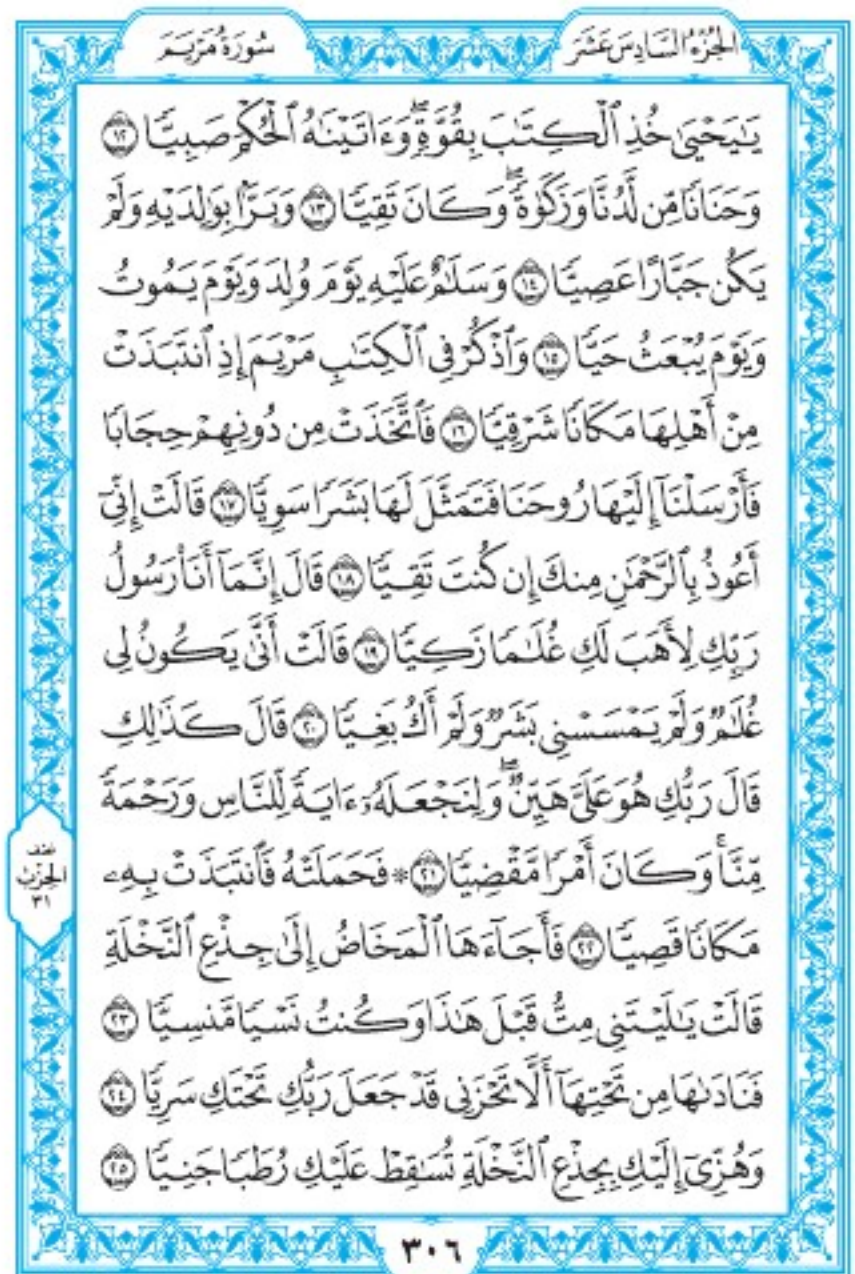 الجزء السادس عشر
سورة مريم
يَٰيَحْيَىٰ خُذِ ٱلْكِتَٰبَ بِقُوَّةٍۖ وَءَاتَيْنَٰهُ ٱلْحُكْمَ صَبِيًّا ١٢
وَحَنَانًا مِّن لَّدُنَّا وَزَكَوٰةًۖ وَكَانَ تَقِيًّا ١٣ وَبَرًّۢا بِوَٰلِدَيْهِ وَلَمْ
يَكُن جَبَّارًا عَصِيًّا ١٤ وَسَلَٰمٌ عَلَيْهِ يَوْمَ وُلِدَ وَيَوْمَ يَمُوتُ
وَيَوْمَ يُبْعَثُ حَيًّا ١٥ وَٱذْكُرْ فِى ٱلْكِتَٰبِ مَرْيَمَ إِذِ ٱنتَبَذَتْ
مِنْ أَهْلِهَا مَكَانًا شَرْقِيًّا ١٦ فَٱتَّخَذَتْ مِن دُونِهِمْ حِجَابًا
فَأَرْسَلْنَآ إِلَيْهَا رُوحَنَا فَتَمَثَّلَ لَهَا بَشَرًا سَوِيًّا ١٧ قَالَتْ إِنِّىٓ
أَعُوذُ بِٱلرَّحْمَٰنِ مِنكَ إِن كُنتَ تَقِيًّا ١٨ قَالَ إِنَّمَآ أَنَا۠ رَسُولُ
رَبِّكِ لِأَهَبَ لَكِ غُلَٰمًا زَكِيًّا ١٩ قَالَتْ أَنَّىٰ يَكُونُ لِى
غُلَٰمٌ وَلَمْ يَمْسَسْنِى بَشَرٌ وَلَمْ أَكُ بَغِيًّا ٢٠ قَالَ كَذَٰلِكِ
قَالَ رَبُّكِ هُوَ عَلَىَّ هَيِّنٌۖ وَلِنَجْعَلَهُۥٓ ءَايَةً لِّلنَّاسِ وَرَحْمَةً
مِّنَّاۚ وَكَانَ أَمْرًا مَّقْضِيًّا ٢١ * فَحَمَلَتْهُ فَٱنتَبَذَتْ بِهِۦ
مَكَانًا قَصِيًّا ٢٢ فَأَجَآءَهَا ٱلْمَخَاضُ إِلَىٰ جِذْعِ ٱلنَّخْلَةِ
قَالَتْ يَٰلَيْتَنِى مِتُّ قَبْلَ هَٰذَا وَكُنتُ نَسْيًا مَّنسِيًّا ٢٣
فَنَادَىٰهَا مِن تَحْتِهَآ أَلَّا تَحْزَنِى قَدْ جَعَلَ رَبُّكِ تَحْتَكِ سَرِيًّا ٢٤
وَهُزِّىٓ إِلَيْكِ بِجِذْعِ ٱلنَّخْلَةِ تُسَٰقِطْ عَلَيْكِ رُطَبًا جَنِيًّا ٢٥
نصف
الحزب
٣١
٣٠٦